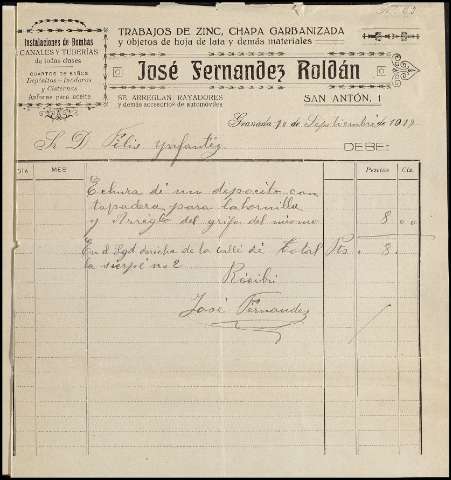 Instalaciones de Bombas
CANALES Y TUBERIAS
de todas clases
CUARTOS DE BAÑOS
Depósitos - Inodoros
y Cisternas
Anforas para aceite
TRABAJOS DE ZINC, CHAPA GARBANIZADA
y objetos de hoja de lata y demás materiales
José Fernandez Roldán
SE ARREGLAN RAYADORES
y demás accesorios de automóviles
SAN ANTÓN, 1
Granada, 10 de Septiembre de 1919
Sr. D. Felix Ynfantes
DEBE:
DIA MES Pesetas Cts.
Echura de un deposito con
tapadera para la hornilla
y Arreglo del grifo del mismo 8 00
En d Sgd derecha de la calle de total Pts. 8
la sierpe no 2
Recibi
José Fernandez